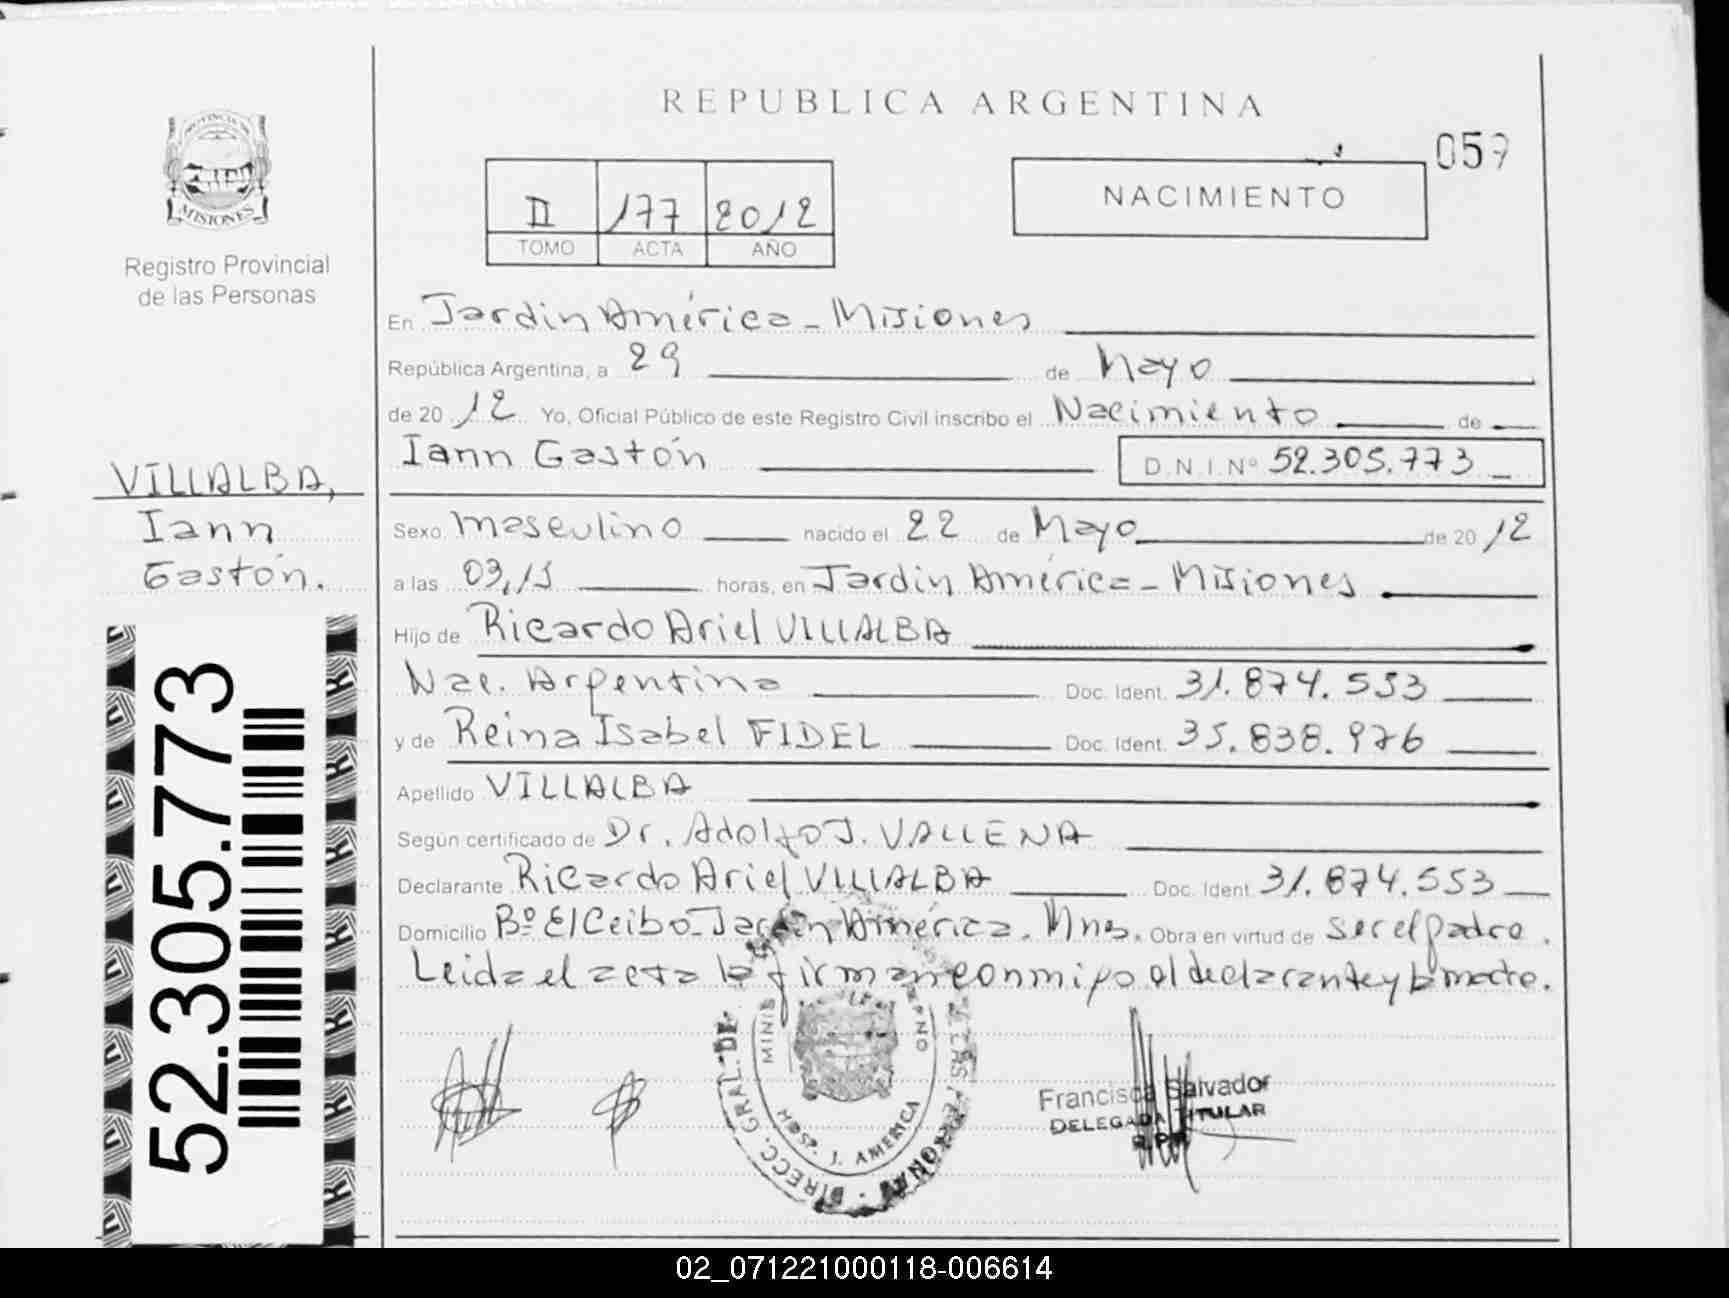 REPUBLICA ARGENTINA
PROVINCIA DE
MISIONES
Registro Provincial
de las Personas
II 177 2012
TOMO ACTA AÑO
NACIMIENTO
059
En Jardín América - Misiones
República Argentina, a 29 de Mayo
de 2012 Yo, Oficial Público de este Registro Civil inscribo el Nacimiento de
Iann Gastón D.N.I. Nº 52.305.773
VILLALBA,
Iann
Gastón.
Sexo masculino nacido el 22 de Mayo de 2012
a las 03,15 horas, en Jardín América - Misiones
Hijo de Ricardo Ariel VILLALBA
Nac. Argentina Doc. Ident. 31.874.553
y de Reina Isabel FIDEL Doc. Ident. 35.838.976
Apellido VILLALBA
Según certificado de Dr. Adolfo J. VALLENA
Declarante Ricardo Ariel VILLALBA Doc. Ident. 31.874.553
Domicilio Bº El Ceibo - Jardín América. Mnes. Obra en virtud de ser el padre.
Leida el acta la firman conmigo el declarante y la madre.
52.305.773
DIRECC. GRAL. DE
HOSP. J. AMERICA
Francisca Salvador
DELEGADA TITULAR
02_071221000118-006614